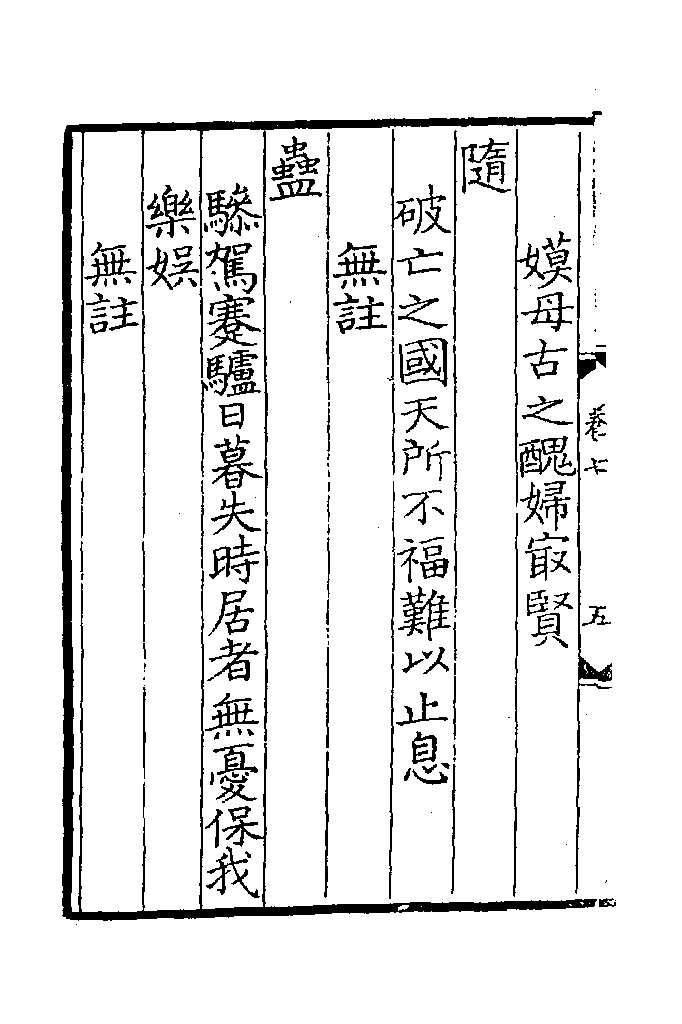 嫫母古之醜婦㝡賢
隨
破亡之國天所不福難以止息
無註
蠱
驂駕蹇驢日暮失時居者無憂保我
樂娛
無註
卷七
五